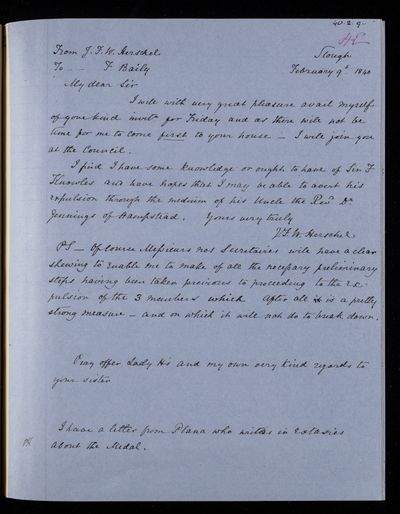 40.2.9.
From J. F. W. Herschel
Slough
To — F. Baily
February 9th 1840
My dear Sir
I will with very great pleasure avail myself
of your kind invitn for Friday and as there will not be
time for me to come first to your house — I will join you
at the Council.
I find I have some knowledge or ought to have of Sir F.
Knowles and have hopes that I may be able to avert his
expulsion through the medium of his Uncle the Revd Dr
Jennings of Hampstead. Yours very truly
J. F. W. Herschel
PS — Of course Messieurs nos Secretaires will have a clear
shewing to enable me to make of all the necessary preliminary
steps having been taken previous to proceeding to the ex-
pulsion of the 3 members which after all is a pretty
strong measure — and on which it will not do to break down.
Pray offer Lady H's and my own very kind regards to
your sister
I have a letter from Plana who writes in extasies
about the Medal.